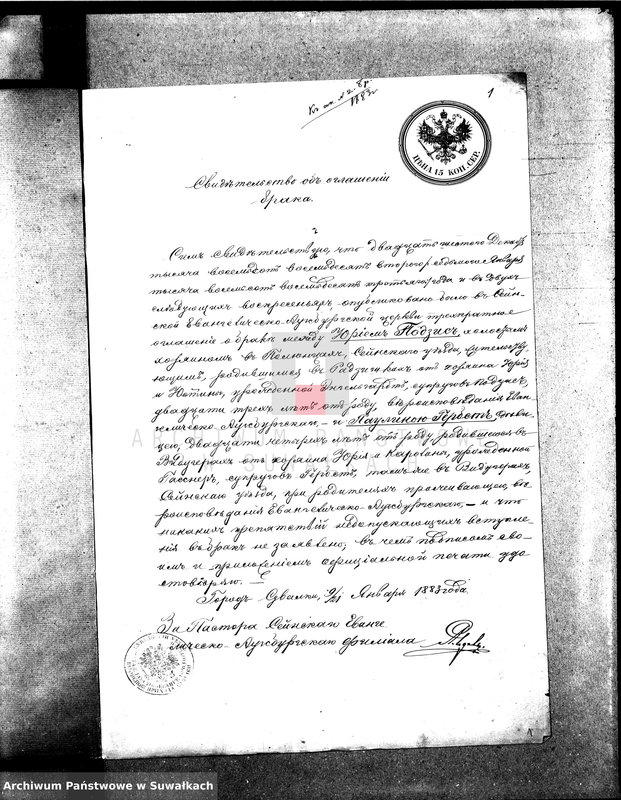 Къ ак. № 2. 8
1883 г.
1
ЦѢНА 15 КОП. СЕР.
Свидѣтельство объ оглашеніи
брака.
Симъ Свидѣтельствую, что двадцать шестого Декабр.
тысяча восемьсотъ восемьдесятъ второго, седьмого Января
тысяча восемьсотъ восемьдесятъ третьяго года и въ двухъ
слѣдующихъ воскресеньяхъ, опубликовано было въ Сейн-
ской Евангелическо-Аугсбургской церкви троекратное
оглашеніе о бракѣ между Юріемъ Подзисъ, холостымъ
хозяиномъ въ Сейнскаго уѣзда, жительству-
ющимъ, родившимся въ отъ хозяина Юрія
и урожденной супруговъ Подзисъ,
двадцати трехъ лѣтъ отъ роду, вѣроисповѣданія Еван-
гелическо-Аугсбургскаго, и Паулиною Гербстъ, дѣви-
цею, двадцати четырехъ лѣтъ отъ роду, родившеюся въ
Видугерахъ отъ хозяина Юрія и Каролины, урожденной
супруговъ Гербстъ, тамъ же въ Видугерахъ,
Сейнскаго уѣзда, при родителяхъ проживающею, вѣ-
роисповѣданія Евангелическо-Аугсбургскаго, — и что
никакихъ препятствій недопускающихъ вступле-
нія въ бракъ не заявлено; въ чемъ подписомъ сво-
имъ и приложеніемъ оффиціальной печати удо-
стовѣряю. —
Городъ Сувалки, 9/21 Января 1883 года.
За Пастора Сейнскаго Еванге-
лическо-Аугсбургскаго филіала
Archiwum Państwowe w Suwałkach